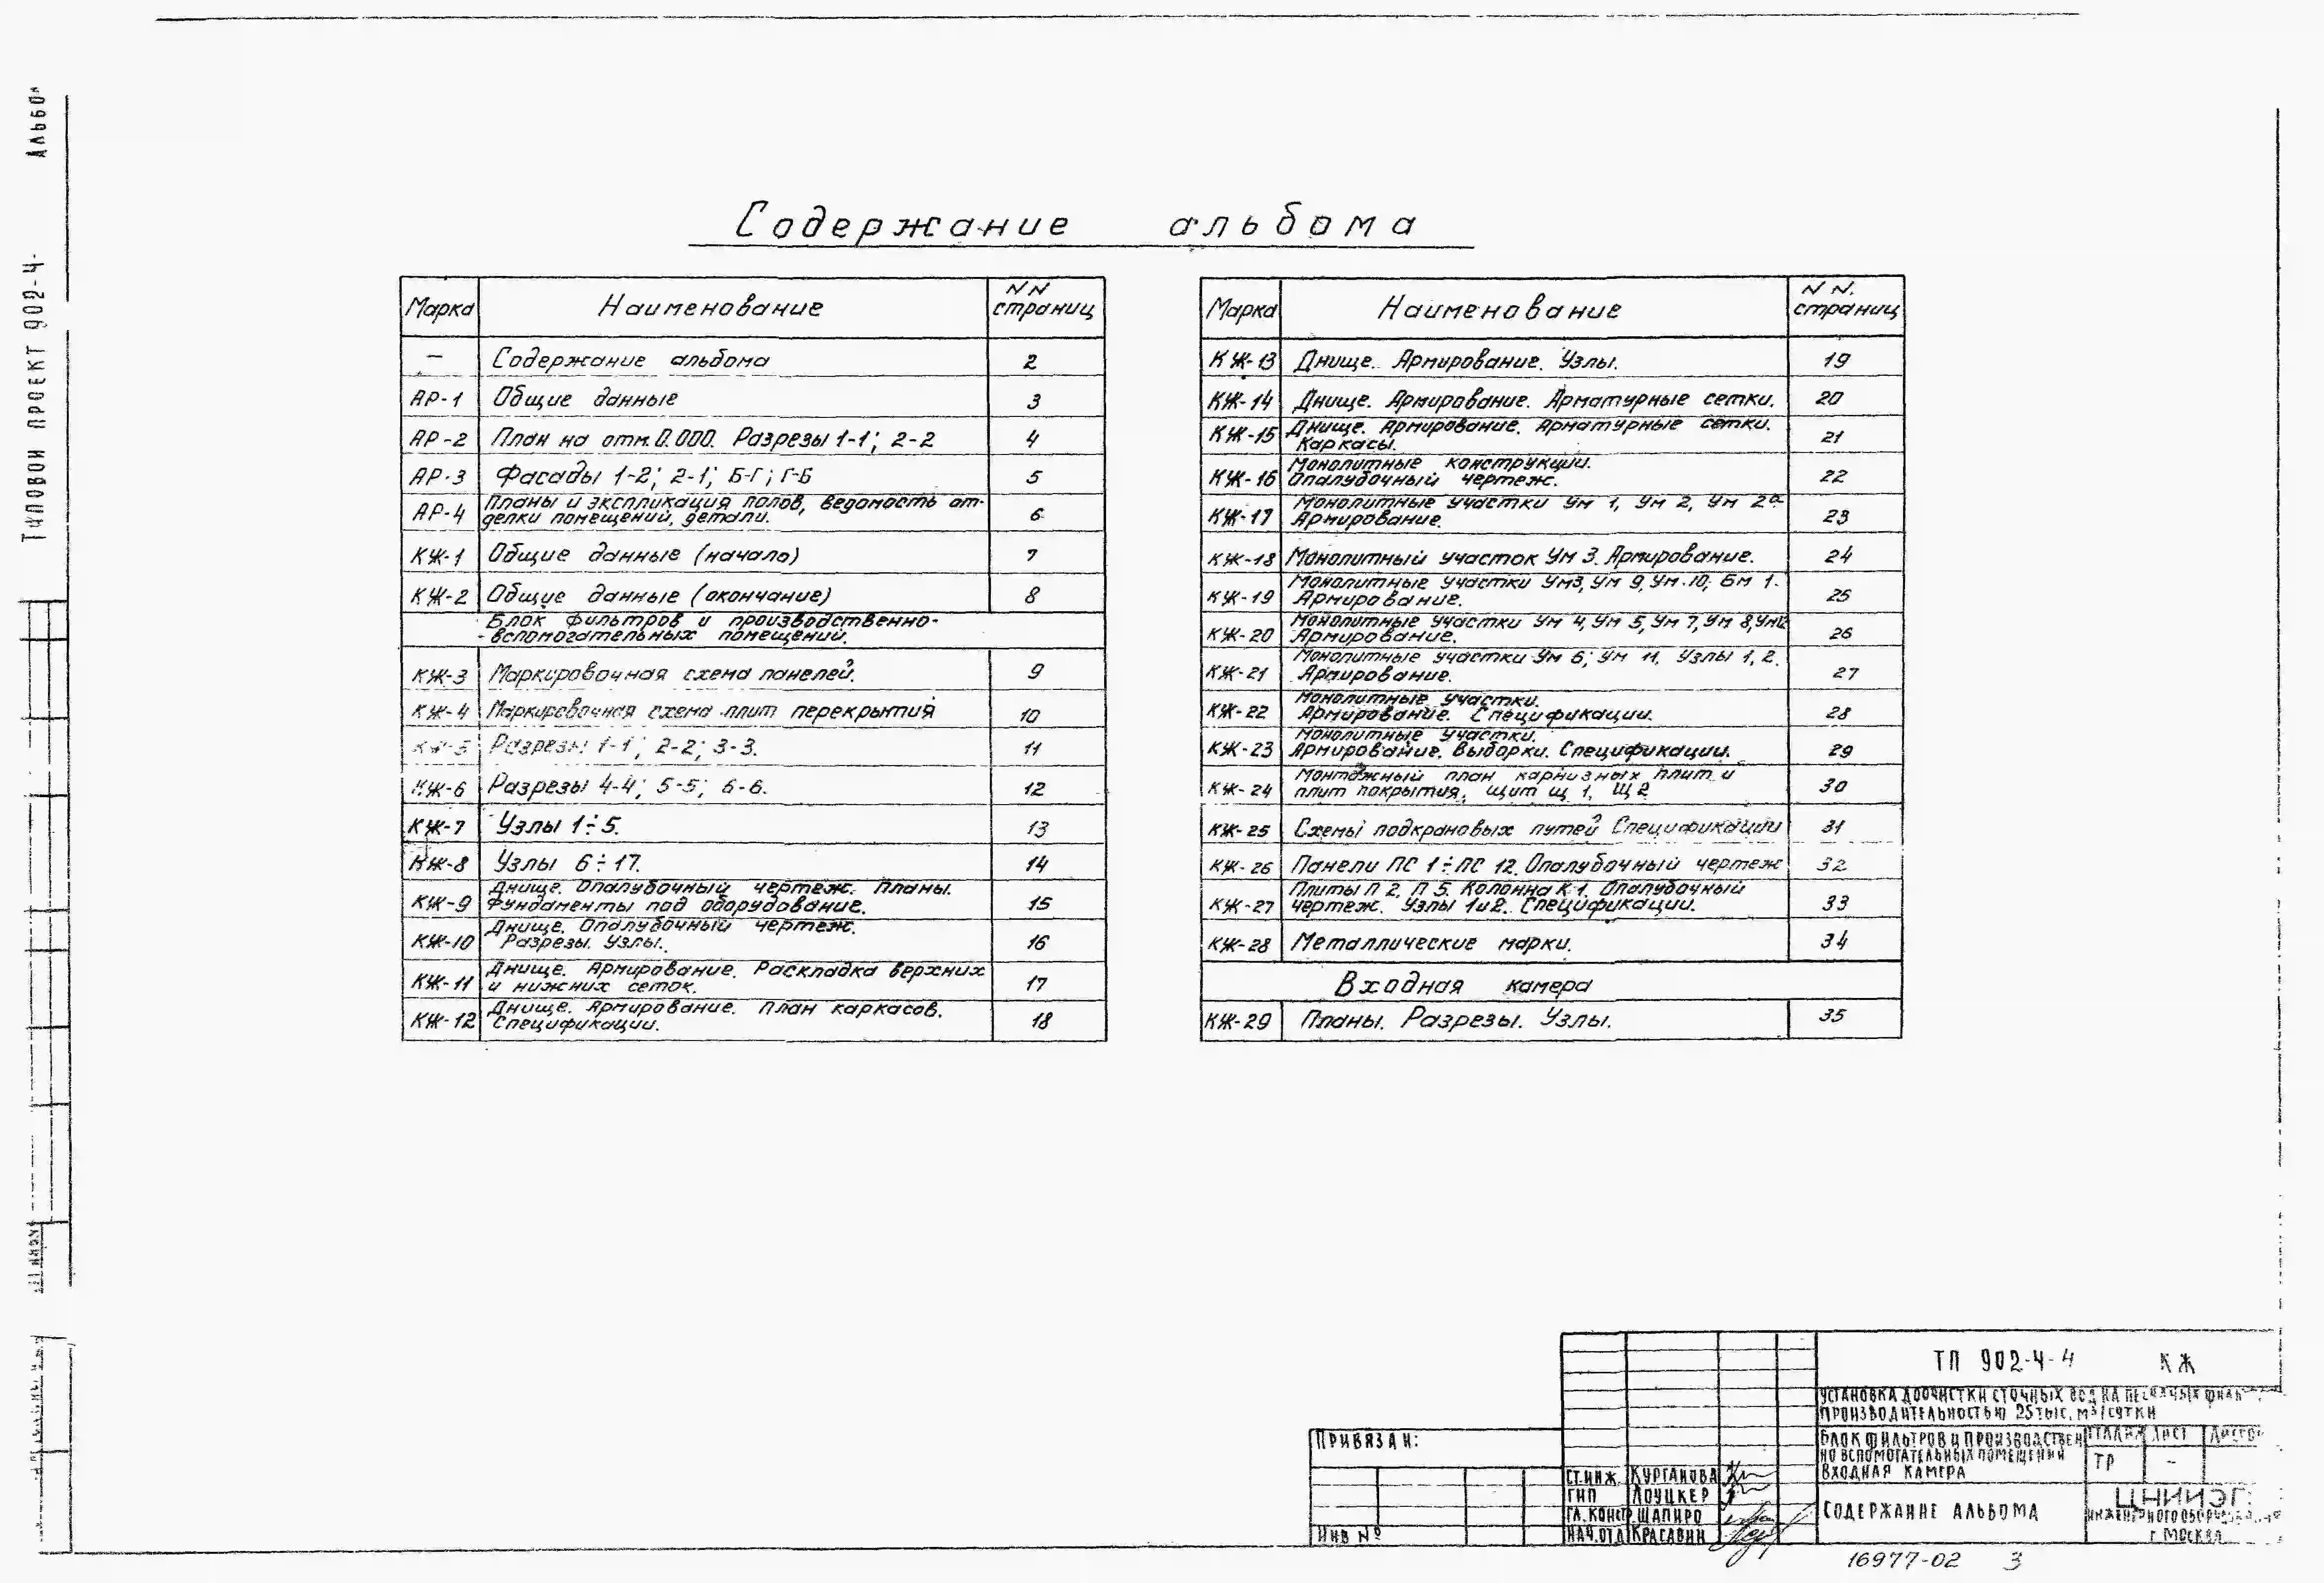 Содержание альбома
Марка Наименование NN страниц
— Содержание альбома 2
АР-1 Общие данные 3
АР-2 План на отм. 0.000. Разрезы 1-1; 2-2 4
АР-3 Фасады 1-2; 2-1; Б-Г; Г-Б 5
АР-4 Планы и экспликация полов, ведомость от-
делки помещений, детали. 6
КЖ-1 Общие данные (начало) 7
КЖ-2 Общие данные (окончание) 8
Блок фильтров и производственно-
-вспомогательных помещений.
КЖ-3 Маркировочная схема панелей. 9
КЖ-4 Маркировочная схема плит перекрытия 10
КЖ-5 Разрезы 1-1; 2-2; 3-3. 11
КЖ-6 Разрезы 4-4; 5-5; 6-6. 12
КЖ-7 Узлы 1÷5. 13
КЖ-8 Узлы 6÷17. 14
КЖ-9 Днище. Опалубочный чертеж. Планы.
Фундаменты под оборудование. 15
КЖ-10 Днище. Опалубочный чертеж.
Разрезы. Узлы. 16
КЖ-11 Днище. Армирование. Раскладка верхних
и нижних сеток. 17
КЖ-12 Днище. Армирование. План каркасов.
Спецификации. 18
Марка Наименование NN. страниц
КЖ-13 Днище. Армирование. Узлы. 19
КЖ-14 Днище. Армирование. Арматурные сетки. 20
КЖ-15 Днище. Армирование. Арматурные сетки.
Каркасы. 21
КЖ-16 Монолитные конструкции.
Опалубочный чертеж. 22
КЖ-17 Монолитные участки Ум 1, Ум 2, Ум 2а
Армирование. 23
КЖ-18 Монолитный участок Ум 3. Армирование. 24
КЖ-19 Монолитные участки Ум3, Ум 9, Ум.10; Бм 1.
Армирование. 25
КЖ-20 Монолитные участки Ум 4, Ум 5, Ум 7, Ум 8, Ум12
Армирование. 26
КЖ-21 Монолитные участки Ум 6; Ум 11. Узлы 1, 2.
Армирование. 27
КЖ-22 Монолитные участки.
Армирование. Спецификации. 28
КЖ-23 Монолитные участки.
Армирование. Выборки. Спецификации. 29
КЖ-24 Монтажный план карнизных плит и
плит покрытия, щит Щ 1, Щ 2 30
КЖ-25 Схемы подкрановых путей Спецификации 31
КЖ-26 Панели ПС 1÷ПС 12. Опалубочный чертеж 32
КЖ-27 Плиты П 2, П 5. Колонна К-1. Опалубочный
чертеж. Узлы 1и2. Спецификации. 33
КЖ-28 Металлические марки. 34
Входная камера
КЖ-29 Планы. Разрезы. Узлы. 35
Типовой проект 902-4-
Альбом
Привязан:
Инв №
Ст.инж. Курганова
ГИП Лоуцкер
Гл.констр. Шапиро
Нач.отд Красавин
ТП 902-4-4 КЖ
Установка доочистки сточных вод на песчаных
производительностью 25 тыс. м³/сутки
Блок фильтров и производствен
но вспомогательных помещений
Входная камера
Лист
ТР –
Содержание альбома
ЦНИИЭП
инженерного
г. Москва
16977-02 3